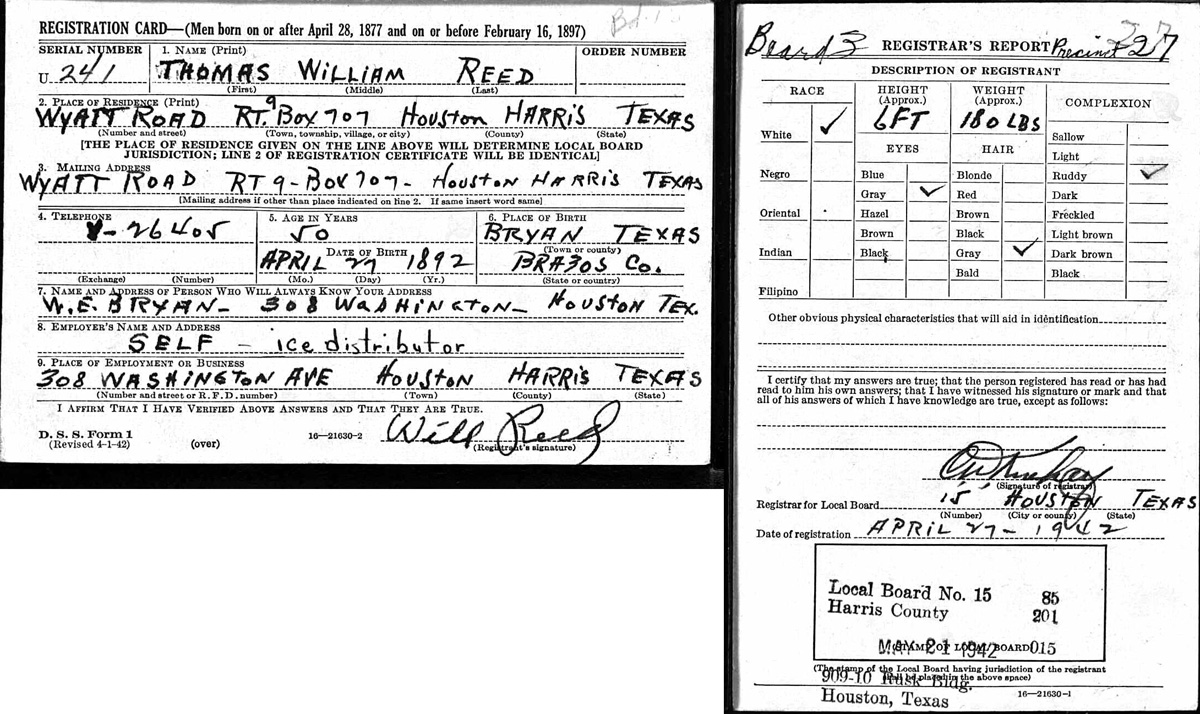 REGISTRATION CARD—(Men born on or after April 28, 1877 and on or before February 16, 1897)
SERIAL NUMBER
1. NAME (Print)
ORDER NUMBER
U 241
THOMAS WILLIAM REED
(First) (Middle) (Last)
2. PLACE OF RESIDENCE (Print)
WYATT ROAD RT 9 BOX 707 HOUSTON HARRIS TEXAS
(Number and street) (Town, township, village, or city) (County) (State)
[THE PLACE OF RESIDENCE GIVEN ON THE LINE ABOVE WILL DETERMINE LOCAL BOARD
JURISDICTION; LINE 2 OF REGISTRATION CERTIFICATE WILL BE IDENTICAL]
3. MAILING ADDRESS
WYATT ROAD RT 9 - BOX 707 - HOUSTON HARRIS TEXAS
[Mailing address if other than place indicated on line 2. If same insert word same]
4. TELEPHONE
5. AGE IN YEARS
6. PLACE OF BIRTH
-26405
50
BRYAN TEXAS
DATE OF BIRTH
(Town or county)
APRIL 27 1892
BRAZOS CO.
(Exchange) (Number)
(Mo.) (Day) (Yr.)
(State or country)
7. NAME AND ADDRESS OF PERSON WHO WILL ALWAYS KNOW YOUR ADDRESS
W.E. BRYAN - 308 WASHINGTON - HOUSTON TEX.
8. EMPLOYER'S NAME AND ADDRESS
SELF - ice distributor
9. PLACE OF EMPLOYMENT OR BUSINESS
308 WASHINGTON AVE HOUSTON HARRIS TEXAS
(Number and street or R. F. D. number) (Town) (County) (State)
I AFFIRM THAT I HAVE VERIFIED ABOVE ANSWERS AND THAT THEY ARE TRUE.
Will Reed
D. S. S. Form 1
(Revised 4-1-42)
(over)
16—21630-2
(Registrant's signature)
Board 3 REGISTRAR'S REPORT Precinct 27
DESCRIPTION OF REGISTRANT
RACE
HEIGHT
(Approx.)
WEIGHT
(Approx.)
COMPLEXION
White ✓
6 FT
180 LBS
Sallow
EYES
HAIR
Light
Negro
Blue
Blonde
Ruddy ✓
Gray ✓
Red
Dark
Oriental
Hazel
Brown
Freckled
Brown
Black
Light brown
Indian
Black
Gray ✓
Dark brown
Bald
Black
Filipino
Other obvious physical characteristics that will aid in identification
I certify that my answers are true; that the person registered has read or has had
read to him his own answers; that I have witnessed his signature or mark and that
all of his answers of which I have knowledge are true, except as follows:
(Signature of registrar)
Registrar for Local Board 15 HOUSTON TEXAS
(Number) (City or county) (State)
Date of registration APRIL 27 - 1942
Local Board No. 15 85
Harris County 201
MAY 21 1942 015
(STAMP OF LOCAL BOARD)
(The stamp of the Local Board having jurisdiction of the registrant
shall be placed in the above space)
909-10 Rusk Bldg.
Houston, Texas
16—21630-1